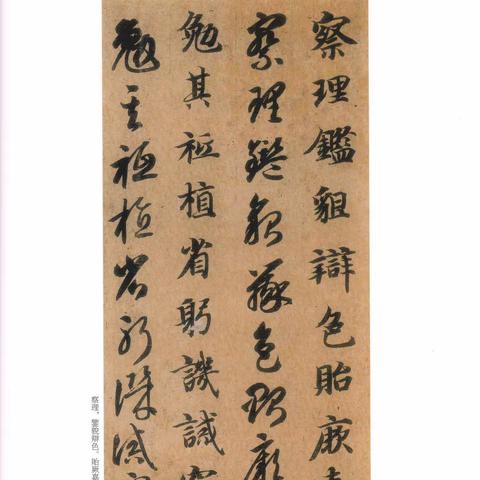 察理鑑貌辯色貽厥
察理鑑貌辯色貽厥
勉其祗植省躬譏誡
勉其祗植省躬譏誡
察理，鑒貌辯色。貽厥嘉